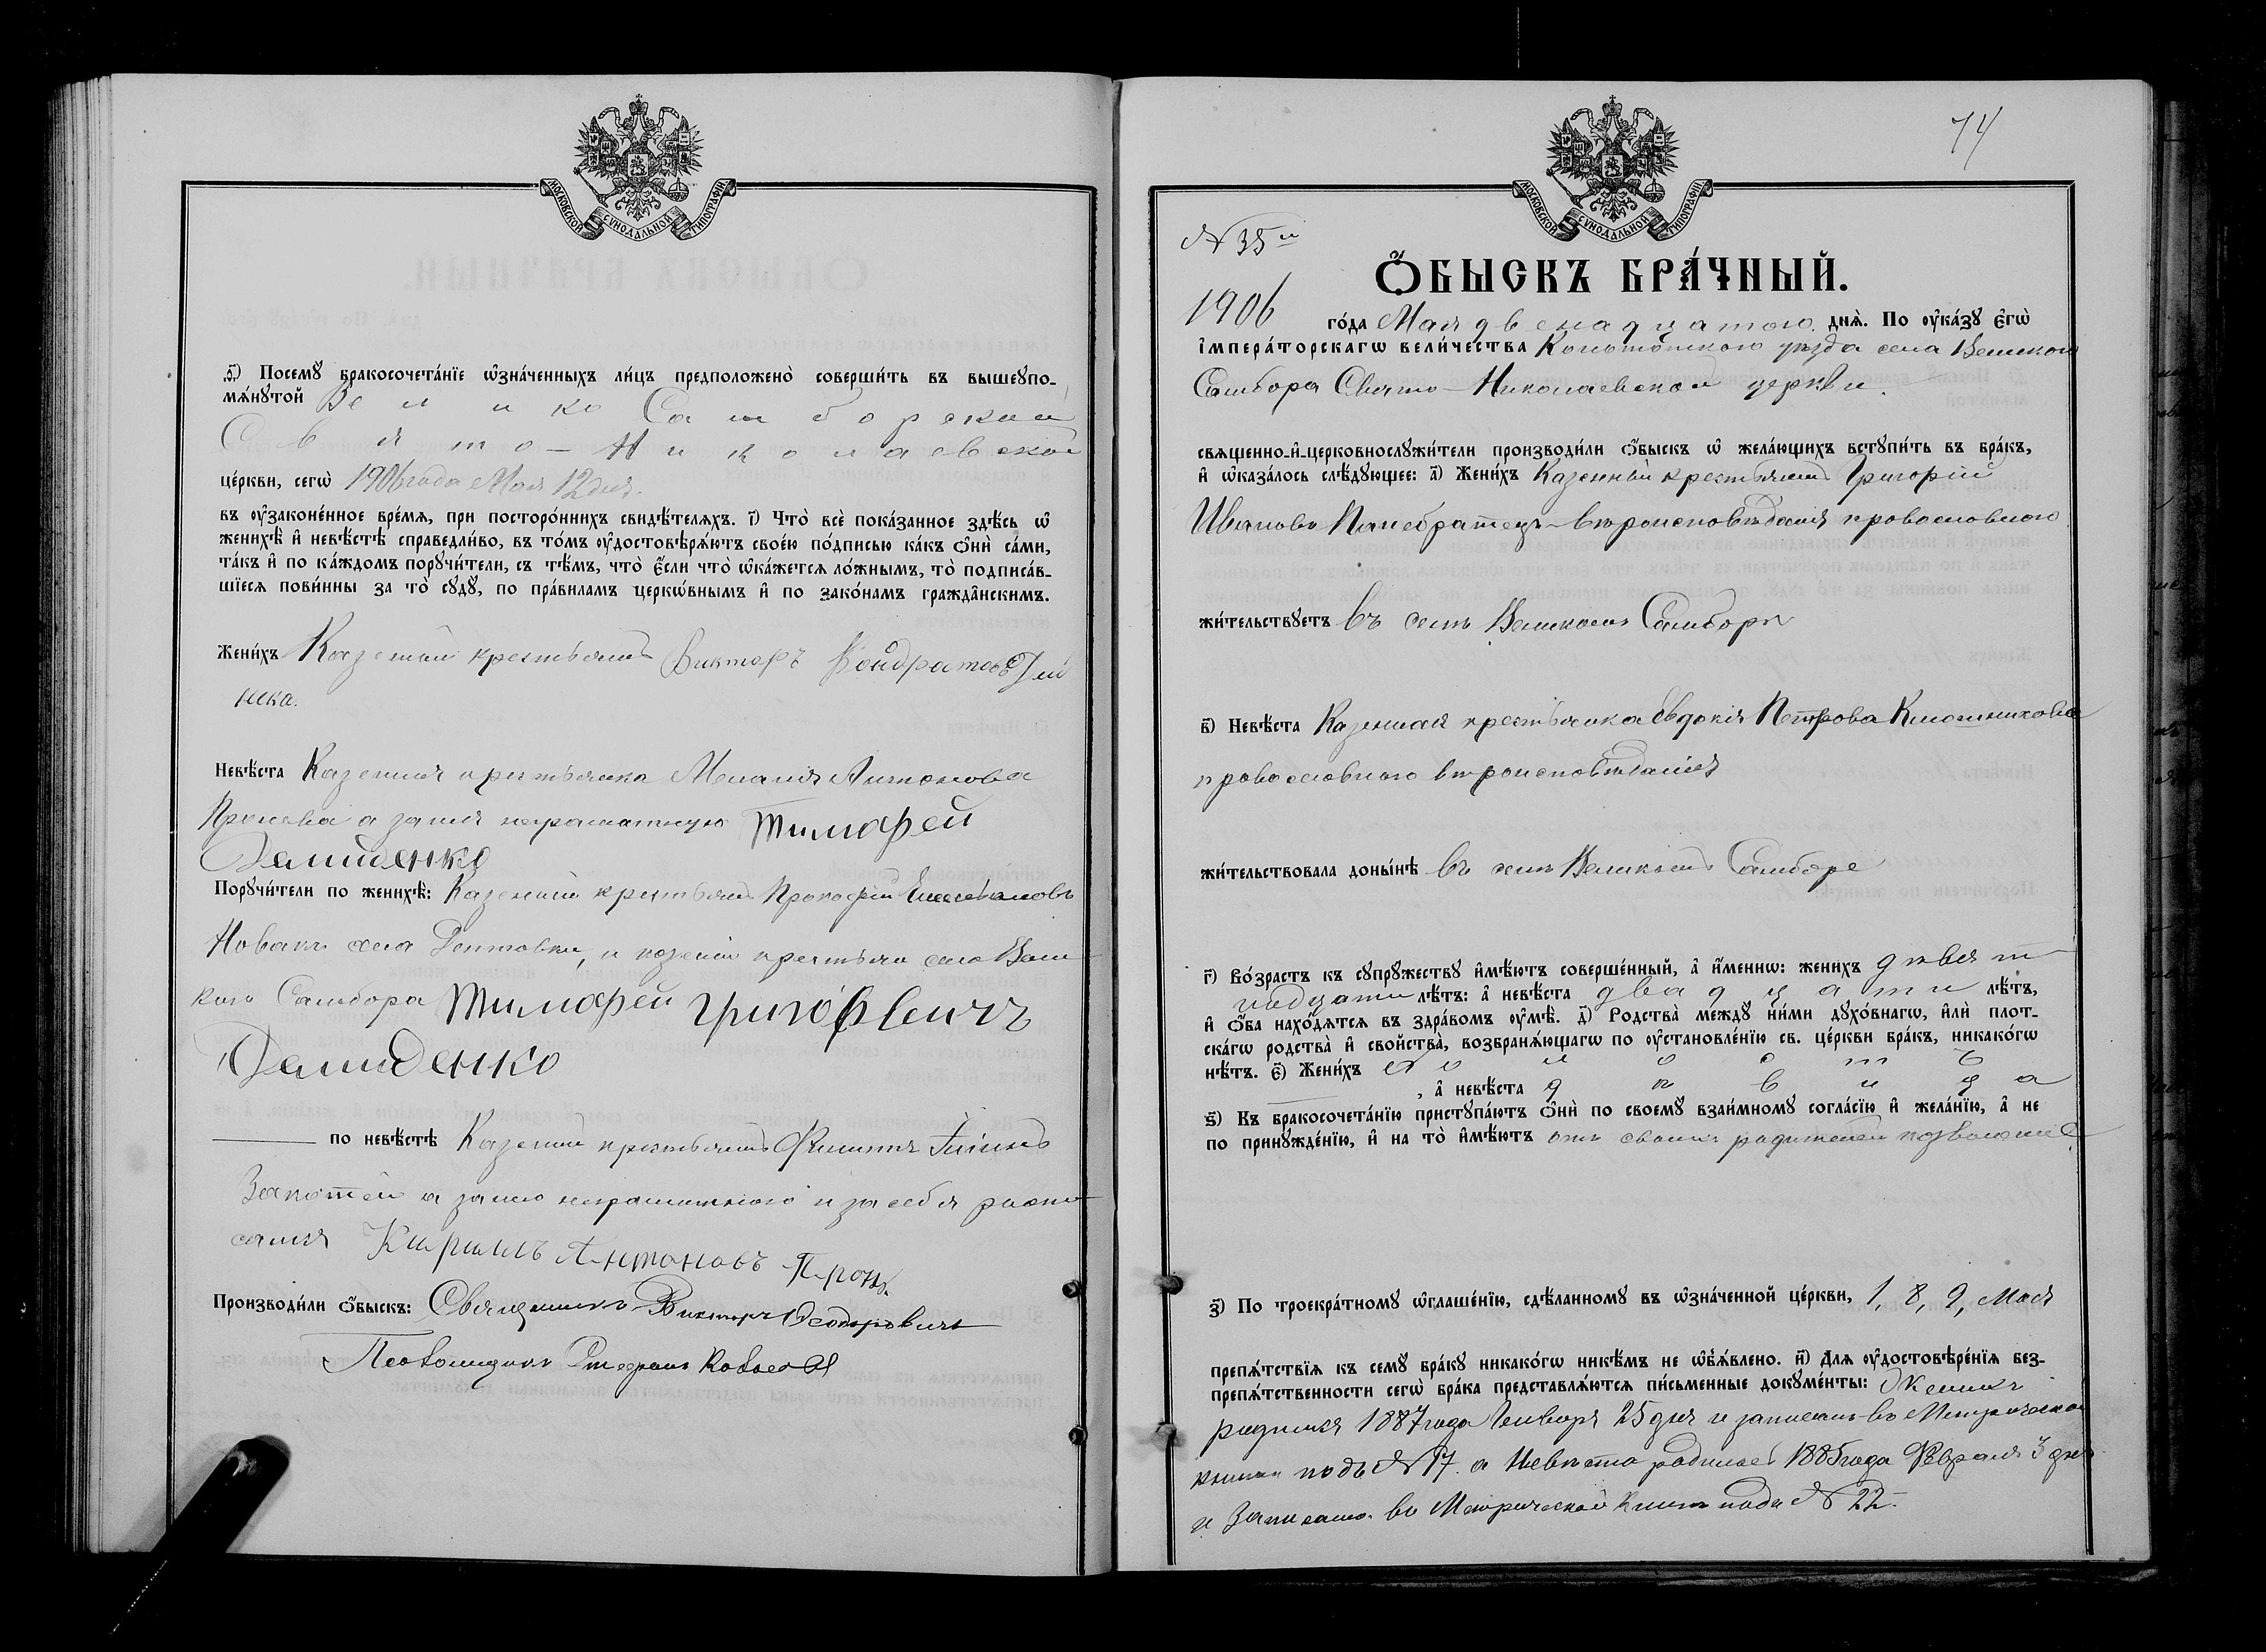 МОСКОВСКОЙ СѴНОДАЛЬНОЙ ТИПОГРАФІИ
Посемꙋ̀ бракосочета́нїе ѡ҆зна́ченныхъ ли́цъ предположено̀ соверши́ть въ вышеꙋпо-
мѧ́нꙋтой Велико Самборской
Свято-Николаевской
це́ркви, сегѡ̀ 1906 года Мая 12 дня.
въ ᲂу҆законе́нное вре́мѧ, при посторо́ннихъ свидѣ́телѧхъ. і҃) Что̀ всѐ пока́занное здѣ́сь ѡ҆
женихѣ̀ и҆ невѣ́стѣ справедли́во, въ то́мъ ᲂу҆достовѣрѧ́ютъ свое́ю по́дписью ка́къ ѻ҆нѝ са́ми,
та́къ и҆ по ка́ждомъ порꙋчи́тели, съ тѣ́мъ, что̀ є҆́сли что̀ ѡ҆ка́жетсѧ ло́жнымъ, то̀ подписа́в-
шїесѧ пови́нны за то̀ сꙋдꙋ̀, по пра́виламъ церко́внымъ и҆ по зако́намъ гражда́нскимъ.
Жени́хъ Казенный крестьянинъ Викторъ Кондратовъ
Невѣ́ста Казенная крестьянка Мелания Антонова
а за нея неграматную Тимофей
Демиденко
Порꙋчи́тели по женихѣ̀: Казенный крестьянинъ Прокофий
Новакъ села и казенный крестьянинъ села Вели-
кого Самбора Тимофей Григорьевичъ
Демиденко
по невѣ́стѣ Казенный крестьянинъ Филиппъ
а за него неграматного и за себя роспи-
сался Кирилъ Антоновъ Пронь
Производи́ли ѻ҆́быскъ: Священникъ Викторъ Феодоровичъ
Псаломщикъ Стефанъ
74
МОСКОВСКОЙ СѴНОДАЛЬНОЙ ТИПОГРАФІИ
№ 35й
Ѻ҆́БЫСКЪ БРА́ЧНЫЙ.
1906 го́да Мая двенадцатого днѧ̀. По ᲂу҆ка́зꙋ є҆гѡ̀
і҆мпера́торскагѡ вели́чества Конотопского уезда села Великого
Самбора Свято-Николаевской церкви.
свѧщенно-и҆-церковнослꙋжи́тели производи́ли ѻ҆́быскъ ѡ҆ жела́ющихъ встꙋпи́ть въ бра́къ,
и҆ ѡ҆каза́лось слѣ́дꙋющее: а҃) Жени́хъ Казенный крестьянинъ Григорій
Ивановъ Панебратецъ вѣроисповѣданія православного
жи́тельствꙋетъ въ селѣ Великомъ Самборѣ
в҃) Невѣ́ста Казенная крестьянка Евдокія Петрова
православного вѣроисповѣданія
жи́тельствовала доны́нѣ въ селѣ Великомъ Самборе
г҃) Во́зрастъ къ сꙋпрꙋ́жествꙋ и҆мѣ́ютъ соверше́нный, а҆ и҆́менно: жени́хъ девят
надцати лѣ́тъ: а҆ невѣ́ста двадцати лѣ́тъ,
и҆ ѻ҆́ба нахо́дѧтсѧ въ здра́вомъ ᲂу҆мѣ̀. д҃) Родства̀ междꙋ̀ ни́ми дꙋхо́внагѡ, и҆лѝ плот-
ска́гѡ родства̀ и҆ свойства̀, возбранѧ́ющагѡ по ᲂу҆становле́нїю св. це́ркви бра́къ, никако́гѡ
нѣ́тъ. є҃) Жени́хъ холостъ
, а҆ невѣ́ста дѣвица
ѕ҃) Къ бракосочета́нїю пристꙋпа́ютъ ѻ҆нѝ по своемꙋ̀ взаи́мномꙋ согла́сїю и҆ жела́нїю, а҆ не
по принꙋжде́нїю, и҆ на то̀ и҆мѣ́ютъ отъ своихъ родителей позволение
з҃) По троекра́тномꙋ ѡ҆глаше́нїю, сдѣ́ланномꙋ въ ѡ҆зна́ченной це́ркви, 1, 8, 9, Мая
препѧ́тствїѧ къ семꙋ̀ бра́кꙋ никако́гѡ никѣ́мъ не ѡ҆б̾ѧ́влено. и҃) Длѧ ᲂу҆достовѣре́нїѧ без-
препѧ́тственности сегѡ̀ бра́ка представлѧ́ютсѧ пи́сьменные докꙋме́нты: Женихъ
родился 1887 года Января 25 дня и записанъ въ Метрической
книги подъ № 17. а Невѣста родилась 1885 года Февраля 3 дня
и Записана въ Метрической книгѣ подъ № 22.